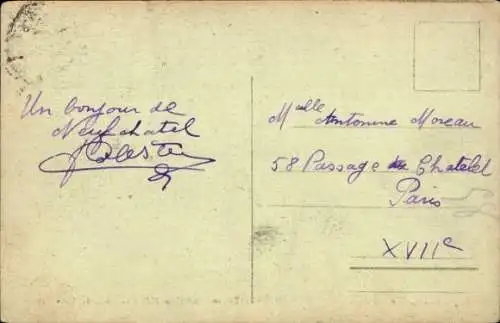 Un bonjour de
Neufchatel
Melle Antonine Moreau
58 Passage Chatelet
Paris
XVIIe